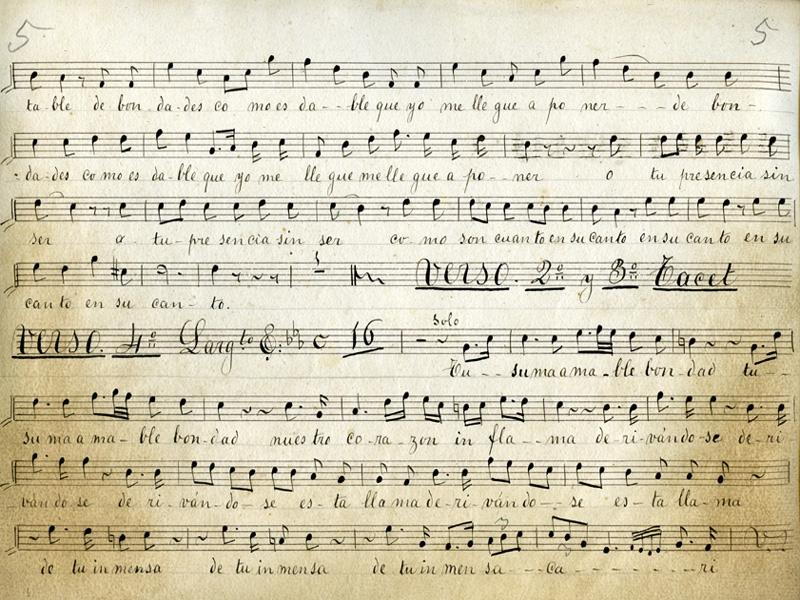 5 5
ta-ble de bon-da-des co mo es da--ble que yo me lle gue a po ner---de bon-
-da-des co mo es da-ble que yo me lle gue me lle gue a po--ner o tu presencia sin
ser o tu-pre sencia sin ser co-mo son cuanto en su canto en su canto en su
canto en su can-to. Verso. 2º y 3º Tacet
Verso. 4º Largto C 16 Solo
Tu--suma ama-ble bon-dad tu--
suma a ma-ble bon-dad nuestro co-ra-zon in fla--ma de-ri-vándo-se de-ri
vándo se de ri-ván-do-se es-ta llama de-ri-ván do--se es-ta lla-ma
de tu inmensa de tu inmensa de tu in men sa--ca-------ri